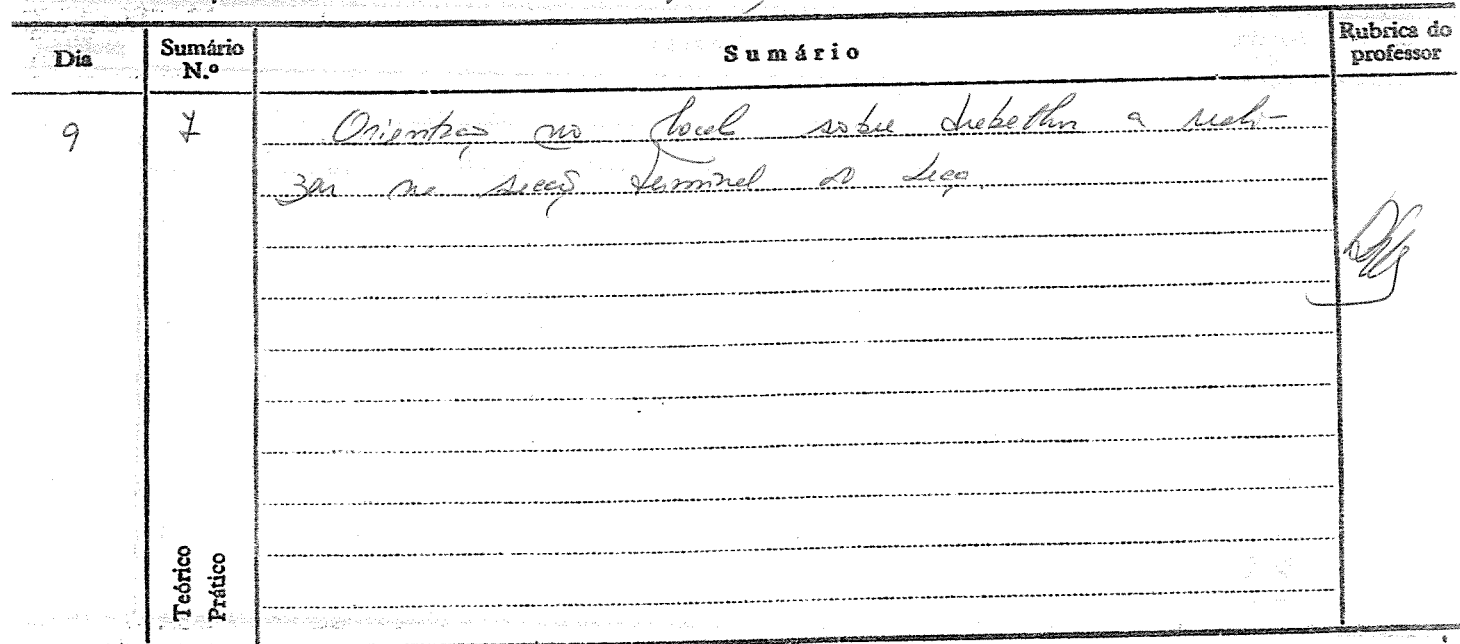 Dia
Sumário
N.º
Sumário
Rubrica do
professor
9
7
Orientação no local sobre trabalhos a reali-
zar na secção terminal do Leça.
Teórico
Prático